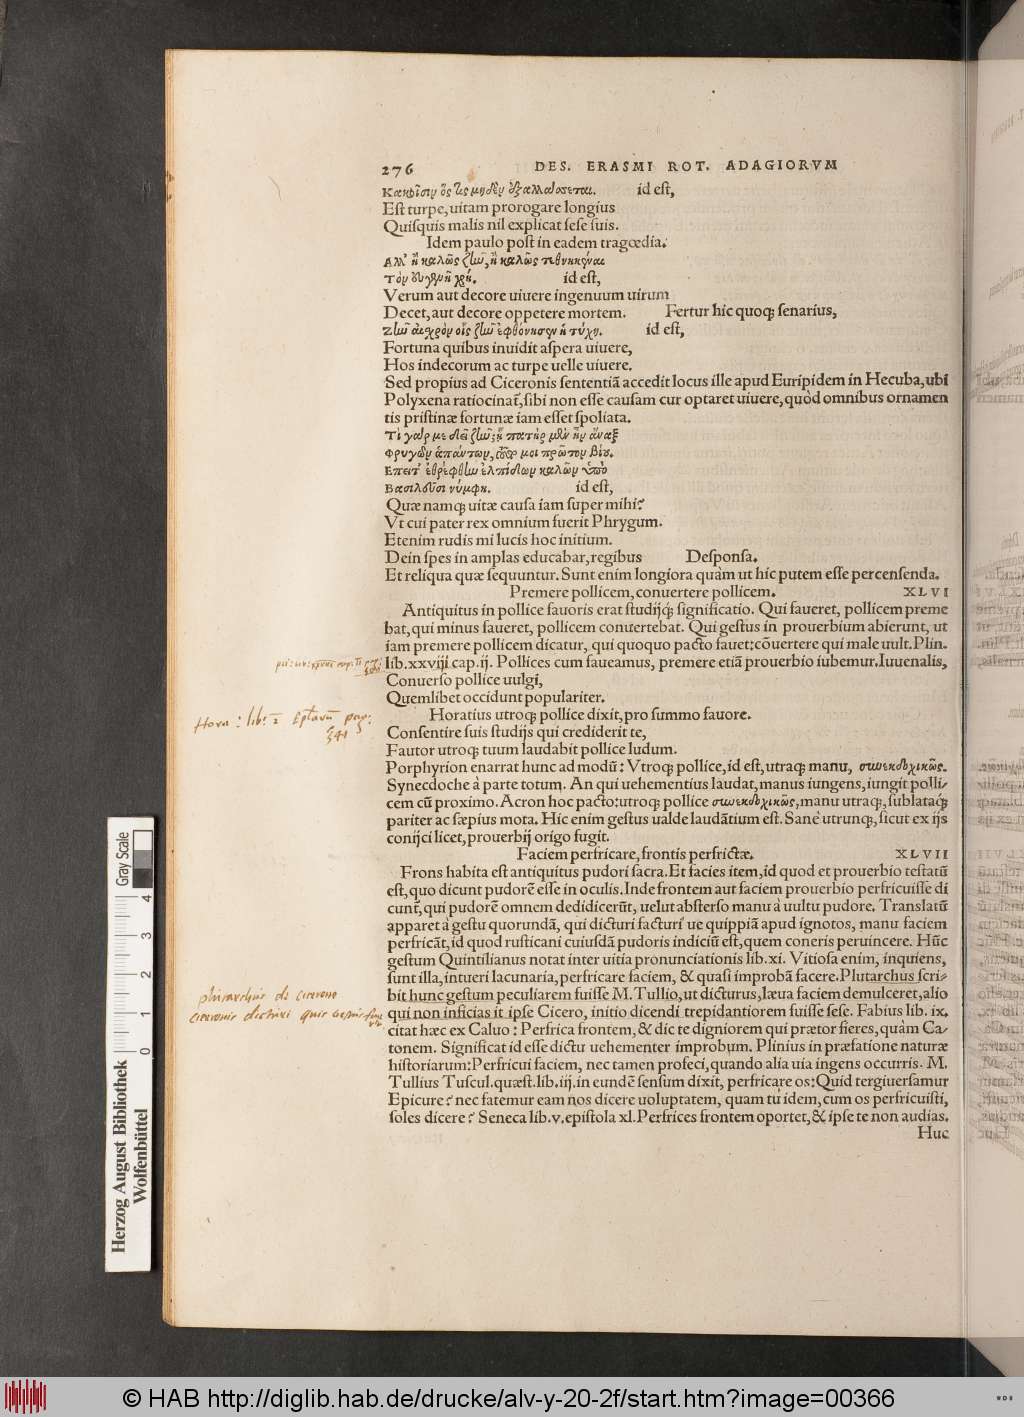 276 DES. ERASMI ROT. ADAGIORVM
id eſt,
Eſt turpe, uitam prorogare longius
Quiſquis malis nil explicat ſeſe ſuis.
Idem paulo poſt in eadem tragœdia.
Αλλ' ἢ καλῶς ζῆν, ἢ καλῶς τεθνηκέναι
Τὸν ευγενῆ χρή. id eſt,
Verum aut decore uiuere ingenuum uirum
Decet, aut decore oppetere mortem. Fertur hic quoq; ſenarius,
Ζῆν αἰσχρὸν οἷς ζῆν ἐφθόνησεν ἡ τύχη. id eſt,
Fortuna quibus inuidit aſpera uiuere,
Hos indecorum ac turpe uelle uiuere.
Sed propius ad Ciceronis ſententiā accedit locus ille apud Euripidem in Hecuba, ubi
Polyxena ratiocinat̃, ſibi non eſſe cauſam cur optaret uiuere, quòd omnibus ornamen
tis priſtinæ fortunæ iam eſſet ſpoliata.
Τί γαρ με δεῖ ζῆν; ᾗ πατὴρ μὲν ἦν ἄναξ
Φρυγῶν ἁπάντων, τοῦτό μοι πρῶτον βίου.
Επειτ' ἐθρέφθην ἐλπίδων καλῶν ὑπὸ
Βασιλεῦσι νύμφη. id eſt,
Quæ namq; uitæ cauſa iam ſuper mihi?
Vt cui pater rex omnium fuerit Phrygum.
Etenim rudis mi lucis hoc initium.
Dein ſpes in amplas educabar, regibus Deſponſa.
Et reliqua quæ ſequuntur. Sunt enim longiora quàm ut hic putem eſſe percenſenda.
Premere pollicem, conuertere pollicem. XLVI
Antiquitus in pollice fauoris erat ſtudijq́; ſignificatio. Qui faueret, pollicem preme
bat, qui minus faueret, pollicem conuertebat. Qui geſtus in prouerbium abierunt, ut
iam premere pollicem dicatur, qui quoquo pacto fauet: cōuertere qui male uult. Plin.
lib. xxviij cap. ij. Pollices cum faueamus, premere etiā prouerbio iubemur. Iuuenalis,
Conuerſo pollice uulgi,
Quemlibet occidunt populariter.
Hora: lib: 2 Ep̄larū pag: 341
Horatius utroq; pollice dixit, pro ſummo fauore.
Conſentire ſuis ſtudijs qui crediderit te,
Fautor utroq; tuum laudabit pollice ludum.
Porphyrion enarrat hunc ad modū: Vtroq; pollice, id eſt, utraq; manu, συνεκδοχικῶς.
Synecdoche à parte totum. An qui uehementius laudat, manus iungens, iungit polli-
cem cū proximo. Acron hoc pacto: utroq; pollice συνεκδοχικῶς, manu utraq;, ſublataq́;
pariter ac ſæpius mota. Hic enim geſtus ualde laudātium eſt. Sane utrunq;, ſicut ex ijs
conijci licet, prouerbij origo fugit.
Faciem perfricare, frontis perfrictæ. XLVII
Frons habita eſt antiquitus pudori ſacra. Et facies item, id quod et prouerbio teſtatū
eſt, quo dicunt pudorē eſſe in oculis. Inde frontem aut faciem prouerbio perfricuiſſe di
cunt̃, qui pudorē omnem dedidicerūt, uelut abſterſo manu à uultu pudore. Translatū
apparet à geſtu quorundā, qui dicturi facturi ue quippiā apud ignotos, manu faciem
perfricāt, id quod ruſticani cuiuſdā pudoris indiciū eſt, quem coneris peruincere. Hūc
geſtum Quintilianus notat inter uitia pronunciationis lib. xi. Vitioſa enim, inquiens,
ſunt illa, intueri lacunaria, perfricare faciem, & quaſi improbā facere. Plutarchus ſcri-
bit hunc geſtum peculiarem fuiſſe M. Tullio, ut dicturus, læua faciem demulceret, alio
qui non inficias it ipſe Cicero, initio dicendi trepidantiorem fuiſſe ſeſe. Fabius lib. ix.
citat hæc ex Caluo: Perfrica frontem, & dic te digniorem qui prætor fieres, quàm Ca-
tonem. Significat id eſſe dictu uehementer improbum. Plinius in præfatione naturæ
hiſtoriarum: Perfricui faciem, nec tamen profeci, quando alia uia ingens occurris. M.
Tullius Tuſcul. quæſt. lib. iij. in eundē ſenſum dixit, perfricare os: Quid tergiuerſamur
Epicure? nec fatemur eam nos dicere uoluptatem, quam tu idem, cum os perfricuiſti,
ſoles dicere? Seneca lib. v. epiſtola xl. Perfrices frontem oportet, & ipſe te non audias.
Huc
plutarchus de cicerone
Gray Scale
4
3
2
1
0
Herzog August Bibliothek
Wolfenbüttel
© HAB http://diglib.hab.de/drucke/alv-y-20-2f/start.htm?image=00366